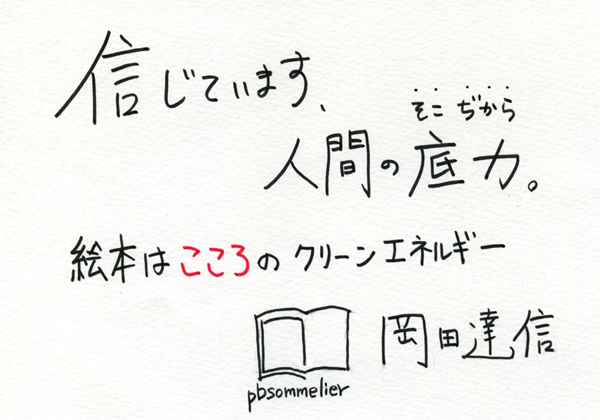 信じています、
そこぢから
人間の底力。
絵本はこころのクリーンエネルギー
岡田達信
pbsommelier